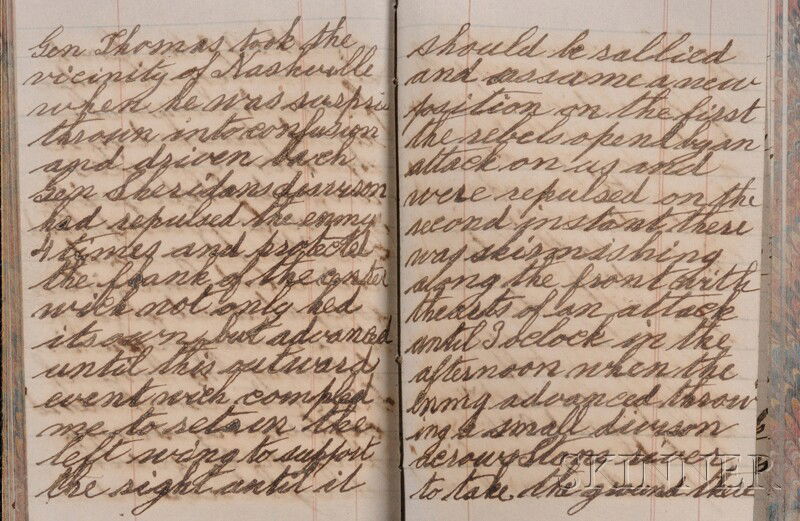 Gen Thomas took the
vicinity of Nashville
when he was surpris
thrown into confusion
and driven back
Gen Sheridans divission
had repulsed the enmy
4 times and protected
the flank of the center
wich not only hed
its own but advanced
until this outward
event wich compled
me to retain the
left wing to support
the right until it
should be rallied
and assame a new
position on the first
the rebels opend an
attack on us and
were repulsed on the
second instant there
was skirmishing
along the front with
thearts of an attack
until 3 oclock in the
afternoon when the
enmy advanced throw
ing a small divison
across stone river
to take the ground there
SKINNER